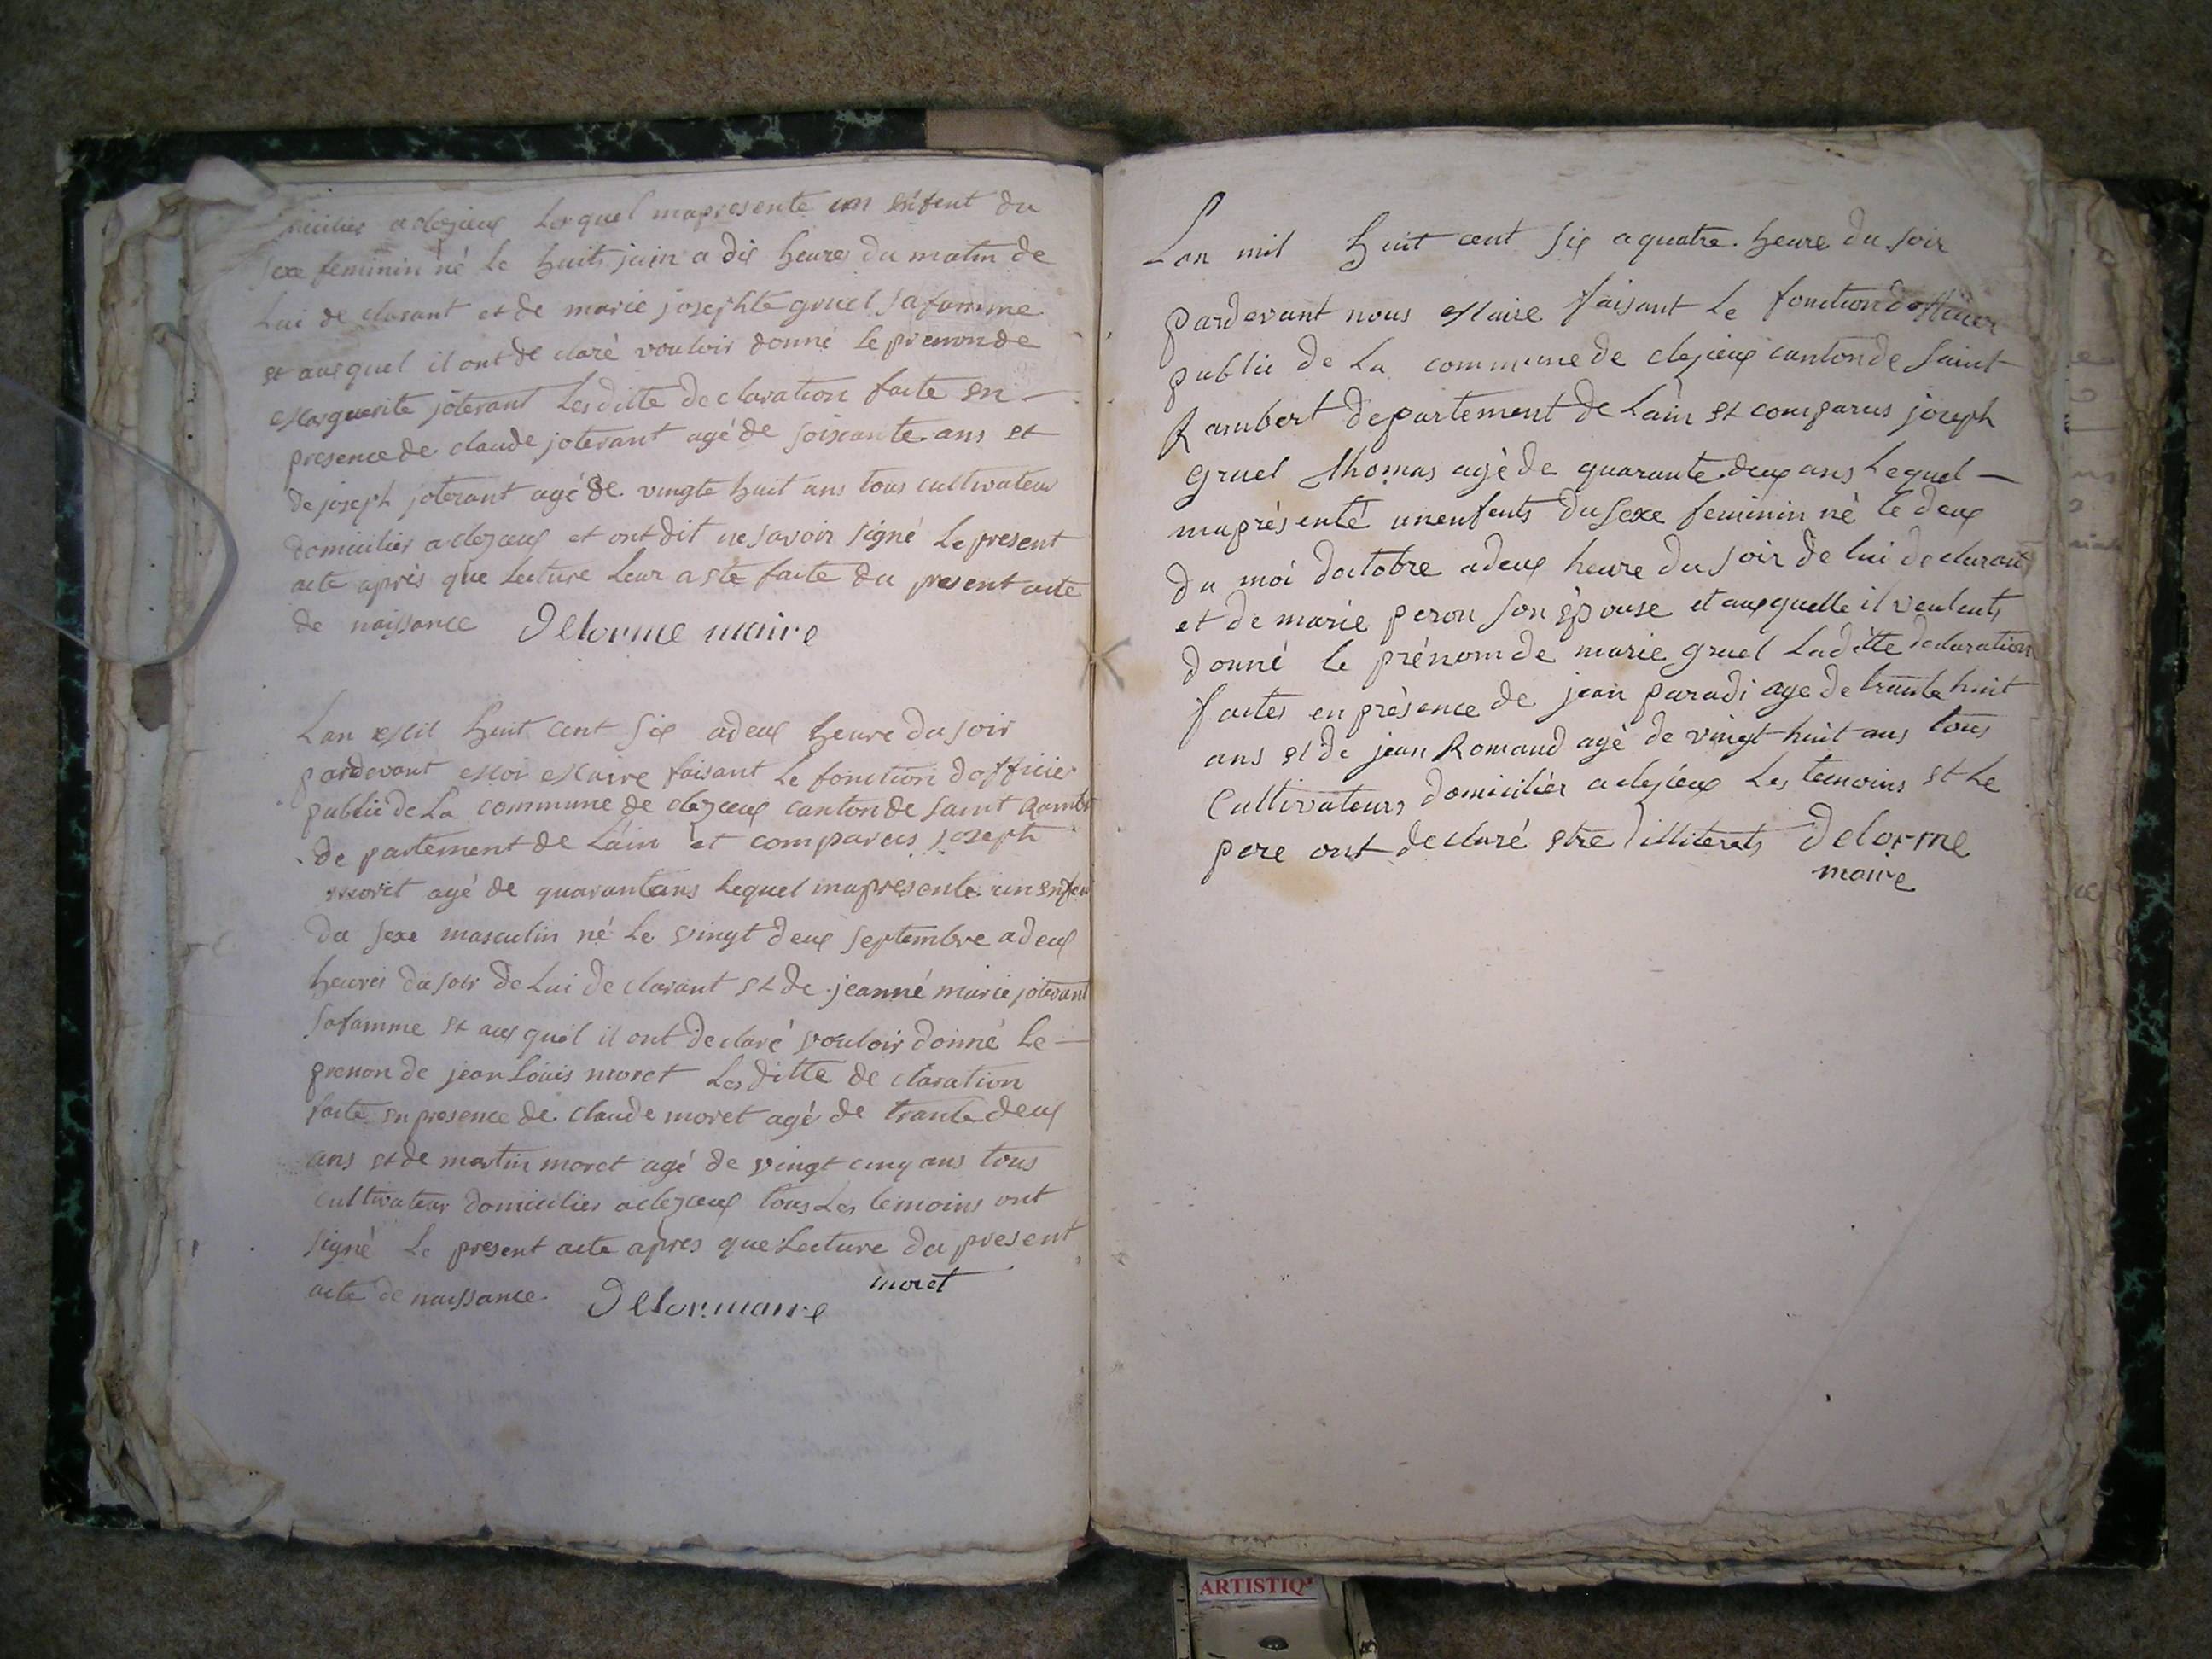 micilier a clezieux lequel mapresente un enfent du
sexe feminin né le huits juin a dix heures du matin de
lui de clarant et de marie josephte gruel sa famme
et auxquel il ont de claré vouloir donné le prenon de
Marguerite joterant lesditte declaration faite en —
presence de claude joterant agé de soixante ans et
de joseph joterant agé de vingte huit ans tous cultivateur
domicilier a clezieux et ont dit ne savoir signé le present
acte après que lecture leur a ete faite du present acte
de naissance Delorme maire
Lan Mil huit cent six a deux heure du soir
pardevant Moi Maire faisant le fonction dofficier
public de la commune de clezieux canton de saint Rambt
de partement de lain et comparus joseph
moret agé de quarantans lequel mapresente un enfen
du sexe masculin né le vingt deux septembre a deux
heures du soir de lui de clarant et de jeanné marie joterant
safamme et aux quel il ont declaré vouloir donné le —
prenon de jean louis moret les ditte de claration
faite en presence de claude moret agé de trante deux
ans et de martin moret agé de vingt cinq ans tous
cultivateur domicilier a clezieux tous les temoins ont
signé le present acte apres que lecture du present
acte de naissance Delor maire moret
Lan mil huit cent six a quatre heure du soir
pardevant nous Maire faisant le fonction dofficier
public de la commune de clezieux canton de saint
Rambert departement de lain et comparus joseph
gruel thomas agé de quarante deux ans lequel —
maprésenté unenfents du sexe feminin né le deux
du moi doctobre a deux heure du soir de lui declarant
et de marie peron son épouse et auxquelle il veulents
donné le prénom de marie gruel laditte declaration
faites en présence de jean paradi age de trante huit
ans et de jean Romand agé de vingt huit ans tous
Cultivateurs domiciliér a clezieux les temoins et le
pere ont declaré etre illiterats Delorme
maire
ARTISTIQ